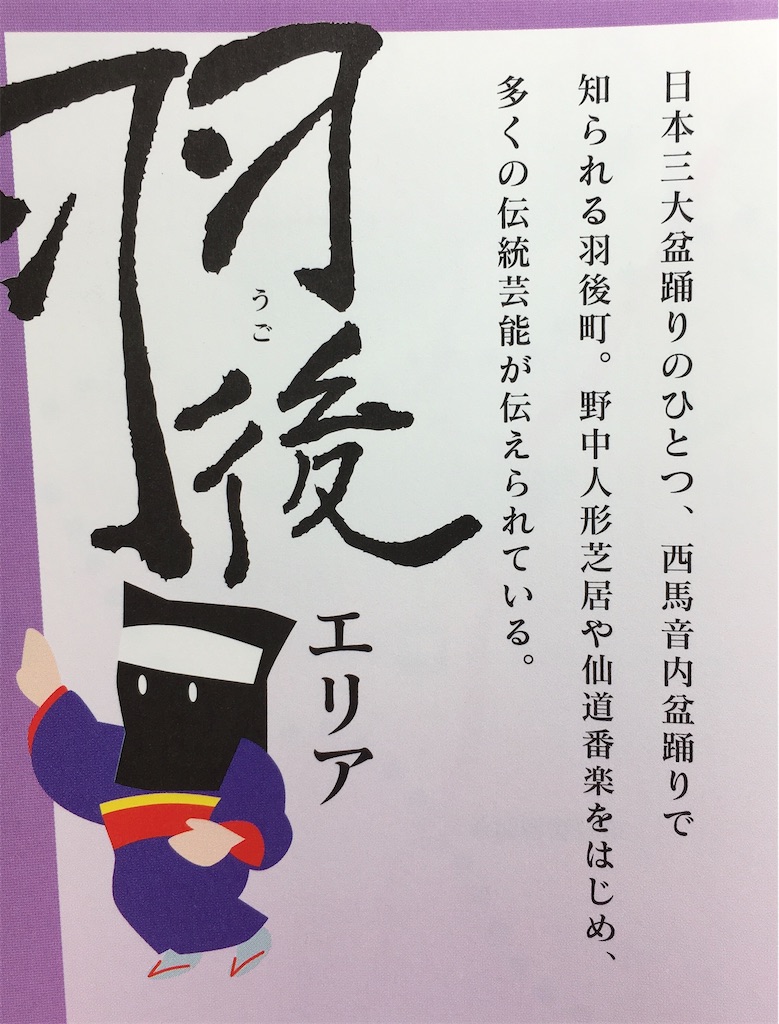 日本三大盆踊りのひとつ、西馬音内盆踊りで
知られる羽後町。野中人形芝居や仙道番楽をはじめ、
多くの伝統芸能が伝えられている。
羽後
うご
エリア